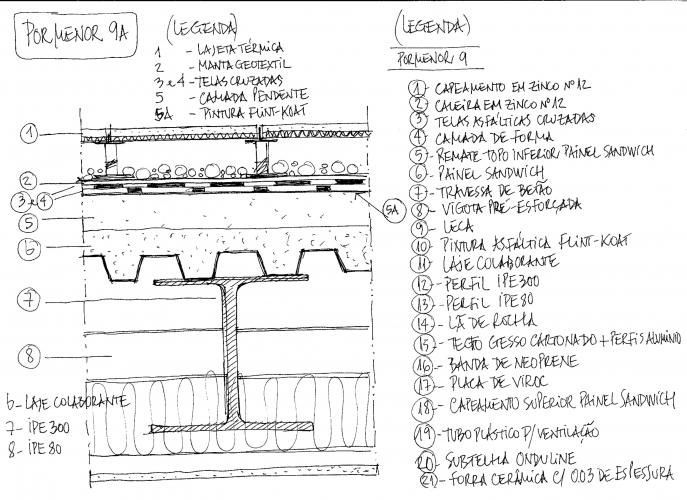 PORMENOR 9A
(LEGENDA)
1 - LAJETA TÉRMICA
2 - MANTA GEOTEXTIL
3 e 4 - TELAS CRUZADAS
5 - CAMADA PENDENTE
5A - PINTURA FLINT-KOAT
1
2
3 e 4
5A
5
6
7
8
6 - LAJE COLABORANTE
7 - IPE 300
8 - IPE 80
(LEGENDA)
PORMENOR 9
1 - CAPEAMENTO EM ZINCO Nº12
2 - CALEIRA EM ZINCO Nº12
3 - TELAS ASFÁLTICAS CRUZADAS
4 - CAMADA DE FORMA
5 - REMATE TOPO INFERIOR PAINEL SANDWICH
6 - PAINEL SANDWICH
7 - TRAVESSA DE BETÃO
8 - VIGOTA PRÉ-ESFORÇADA
9 - LECA
10 - PINTURA ASFÁLTICA FLINT-KOAT
11 - LAJE COLABORANTE
12 - PERFIL IPE 300
13 - PERFIL IPE 80
14 - LÃ DE ROCHA
15 - TECTO GESSO CARTONADO + PERFIS ALUMÍNIO
16 - BANDA DE NEOPRENE
17 - PLACA DE VIROC
18 - CAPEAMENTO SUPERIOR PAINEL SANDWICH
19 - TUBO PLÁSTICO P/ VENTILAÇÃO
20 - SUBTELHA ONDULINE
21 - FORRA CERÂMICA C/ 0.03 DE ESPESSURA